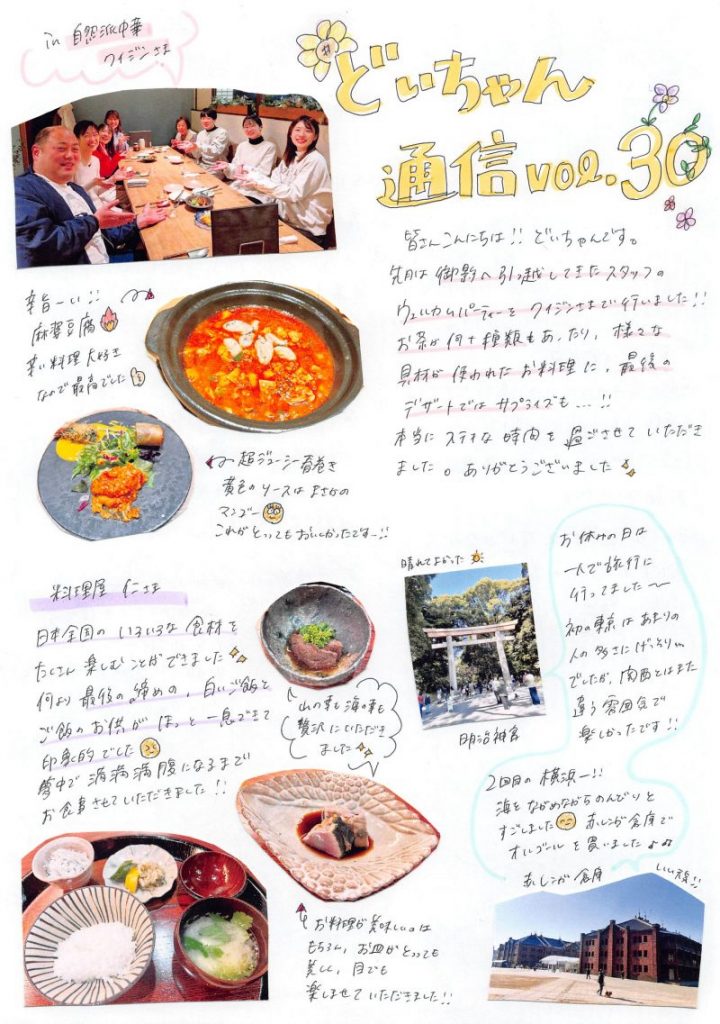 in 自然派中華
クイジンさま
どいちゃん
通信 vol.30
皆さんこんにちは!! どいちゃんです。
先月は 御影へ引っ越してきたスタッフの
ウェルカムパーティーを クイジンさまで行いました!!
お茶が何十種類もあったり、様々な
具材が使われたお料理に、最後の
デザートではサプライズも…!!
本当にステキな時間を過ごさせていただき
ました。ありがとうございました
辛旨ーい!!
麻婆豆腐
辛い料理大好き
なので最高でした
超ジューシー春巻き
黄色のソースはまさかの
マンゴー
これがとってもおいしかったですー!!
料理屋 仁さま
日本全国のいろいろな食材を
たくさん楽しむことができました
何より最後の〆の、白いご飯と
ご飯のお供がほっと一息できて
印象的でした
夢中で満腹になるまで
お食事させていただきました!!
山の幸も海の幸も
贅沢にいただき
ました
お料理が美味しいのは
もちろん、お皿がとっても
美しく、目でも
楽しませていただきました!!
晴れてよかった
明治神宮
お休みの日は
一人で旅行に
行ってました〜
初の東京はあまりの
人の多さにげっそり
でしたが、関西とはまた
違う雰囲気で
楽しかったです!!
2回目の横浜ー!!
海をながめながらのんびりと
すごしました 赤レンガ倉庫で
オルゴールを買いました♪♪
赤レンガ倉庫
いい天気!!